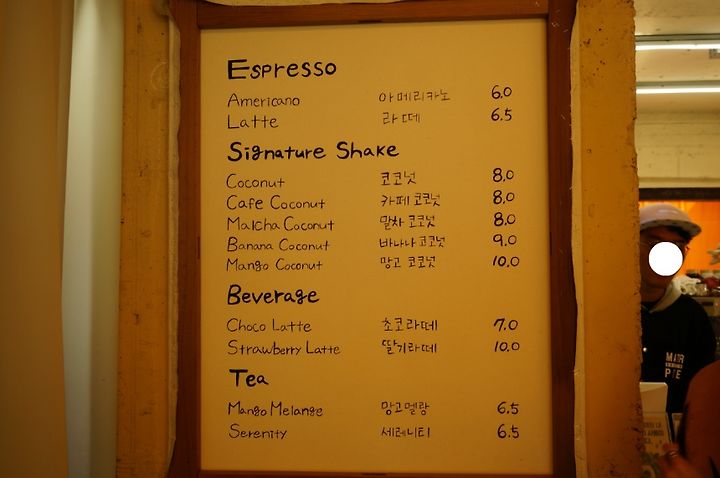 Espresso
Americano 아메리카노 6.0
Latte 라떼 6.5
Signature Shake
Coconut 코코넛 8.0
Cafe Coconut 카페 코코넛 8.0
Matcha Coconut 말차 코코넛 8.0
Banana Coconut 바나나 코코넛 9.0
Mango Coconut 망고 코코넛 10.0
Beverage
Choco Latte 초코라떼 7.0
Strawberry Latte 딸기라떼 10.0
Tea
Mango Melange 망고멜랑 6.5
Serenity 세레니티 6.5